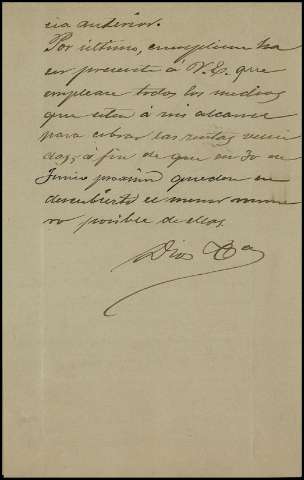 cia anterior.
Por último, cumpleme ha
cer presente á V.E. que
empleare todos los medios
que estan á mi alcance
para cobrar las rentas venci
das, á fin de que en 30 de
Junio próximo queden en
descubierto el menor nume
ro posible de ellas.
Dios &a